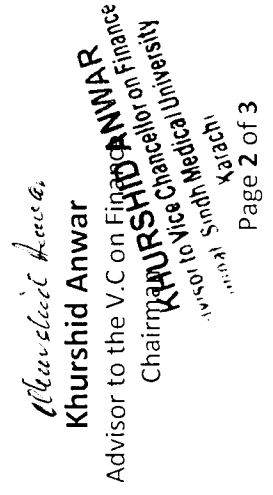 Khurshid Anwar
Khurshid Anwar
Advisor to the V.C on Finance
Chairman
KHURSHID ANWAR
to Vice Chancellor on Finance
Sindh Medical University
Karachi
Page 2 of 3